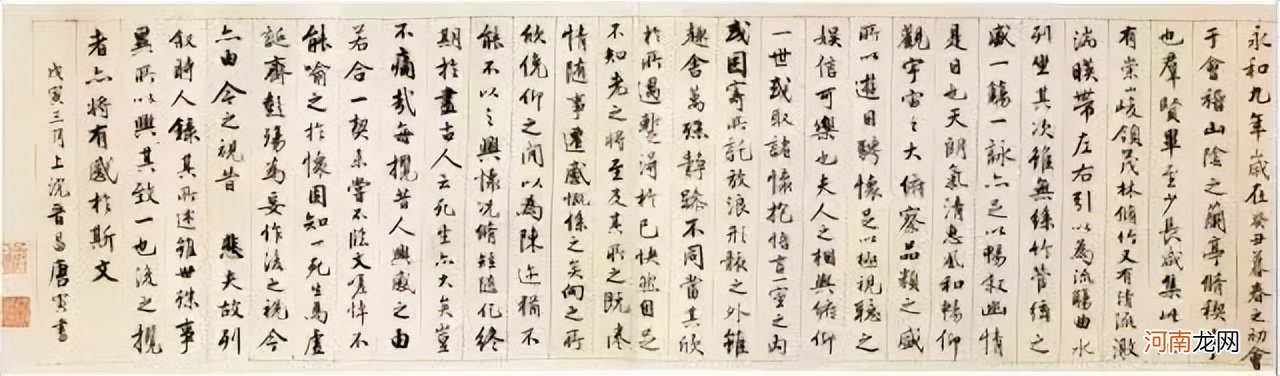 永和九年歲在癸丑暮春之初會
于會稽山陰之蘭亭脩稧
也羣賢畢至少長咸集此
有崇山峻領茂林脩竹又有清流激
湍暎帶左右引以為流觴曲水
列坐其次雖無絲竹管絃之
盛一觴一詠亦足以暢敘幽情
是日也天朗氣清惠風和暢仰
觀宇宙之大俯察品類之盛
所以遊目騁懷足以極視聽之
娛信可樂也夫人之相與俯仰
一世或取諸懷抱悟言一室之內
或因寄所託放浪形骸之外雖
趣舍萬殊靜躁不同當其欣
於所遇蹔得於己快然自足
不知老之將至及其所之既惓
情隨事遷感慨係之矣向之所
欣俛仰之間以為陳迹猶不
能不以之興懷況脩短隨化終
期於盡古人云死生亦大矣豈
不痛哉每攬昔人興感之由
若合一契未嘗不臨文嗟悼不
能喻之於懷固知一死生為虛
誕齊彭殤為妄作後之視今
亦由今之視昔 悲夫故列
叙時人錄其所述雖世殊事
異所以興其致一也後之攬
者亦將有感於斯文
戊寅三月上浣晉昌唐寅書
河南龙网